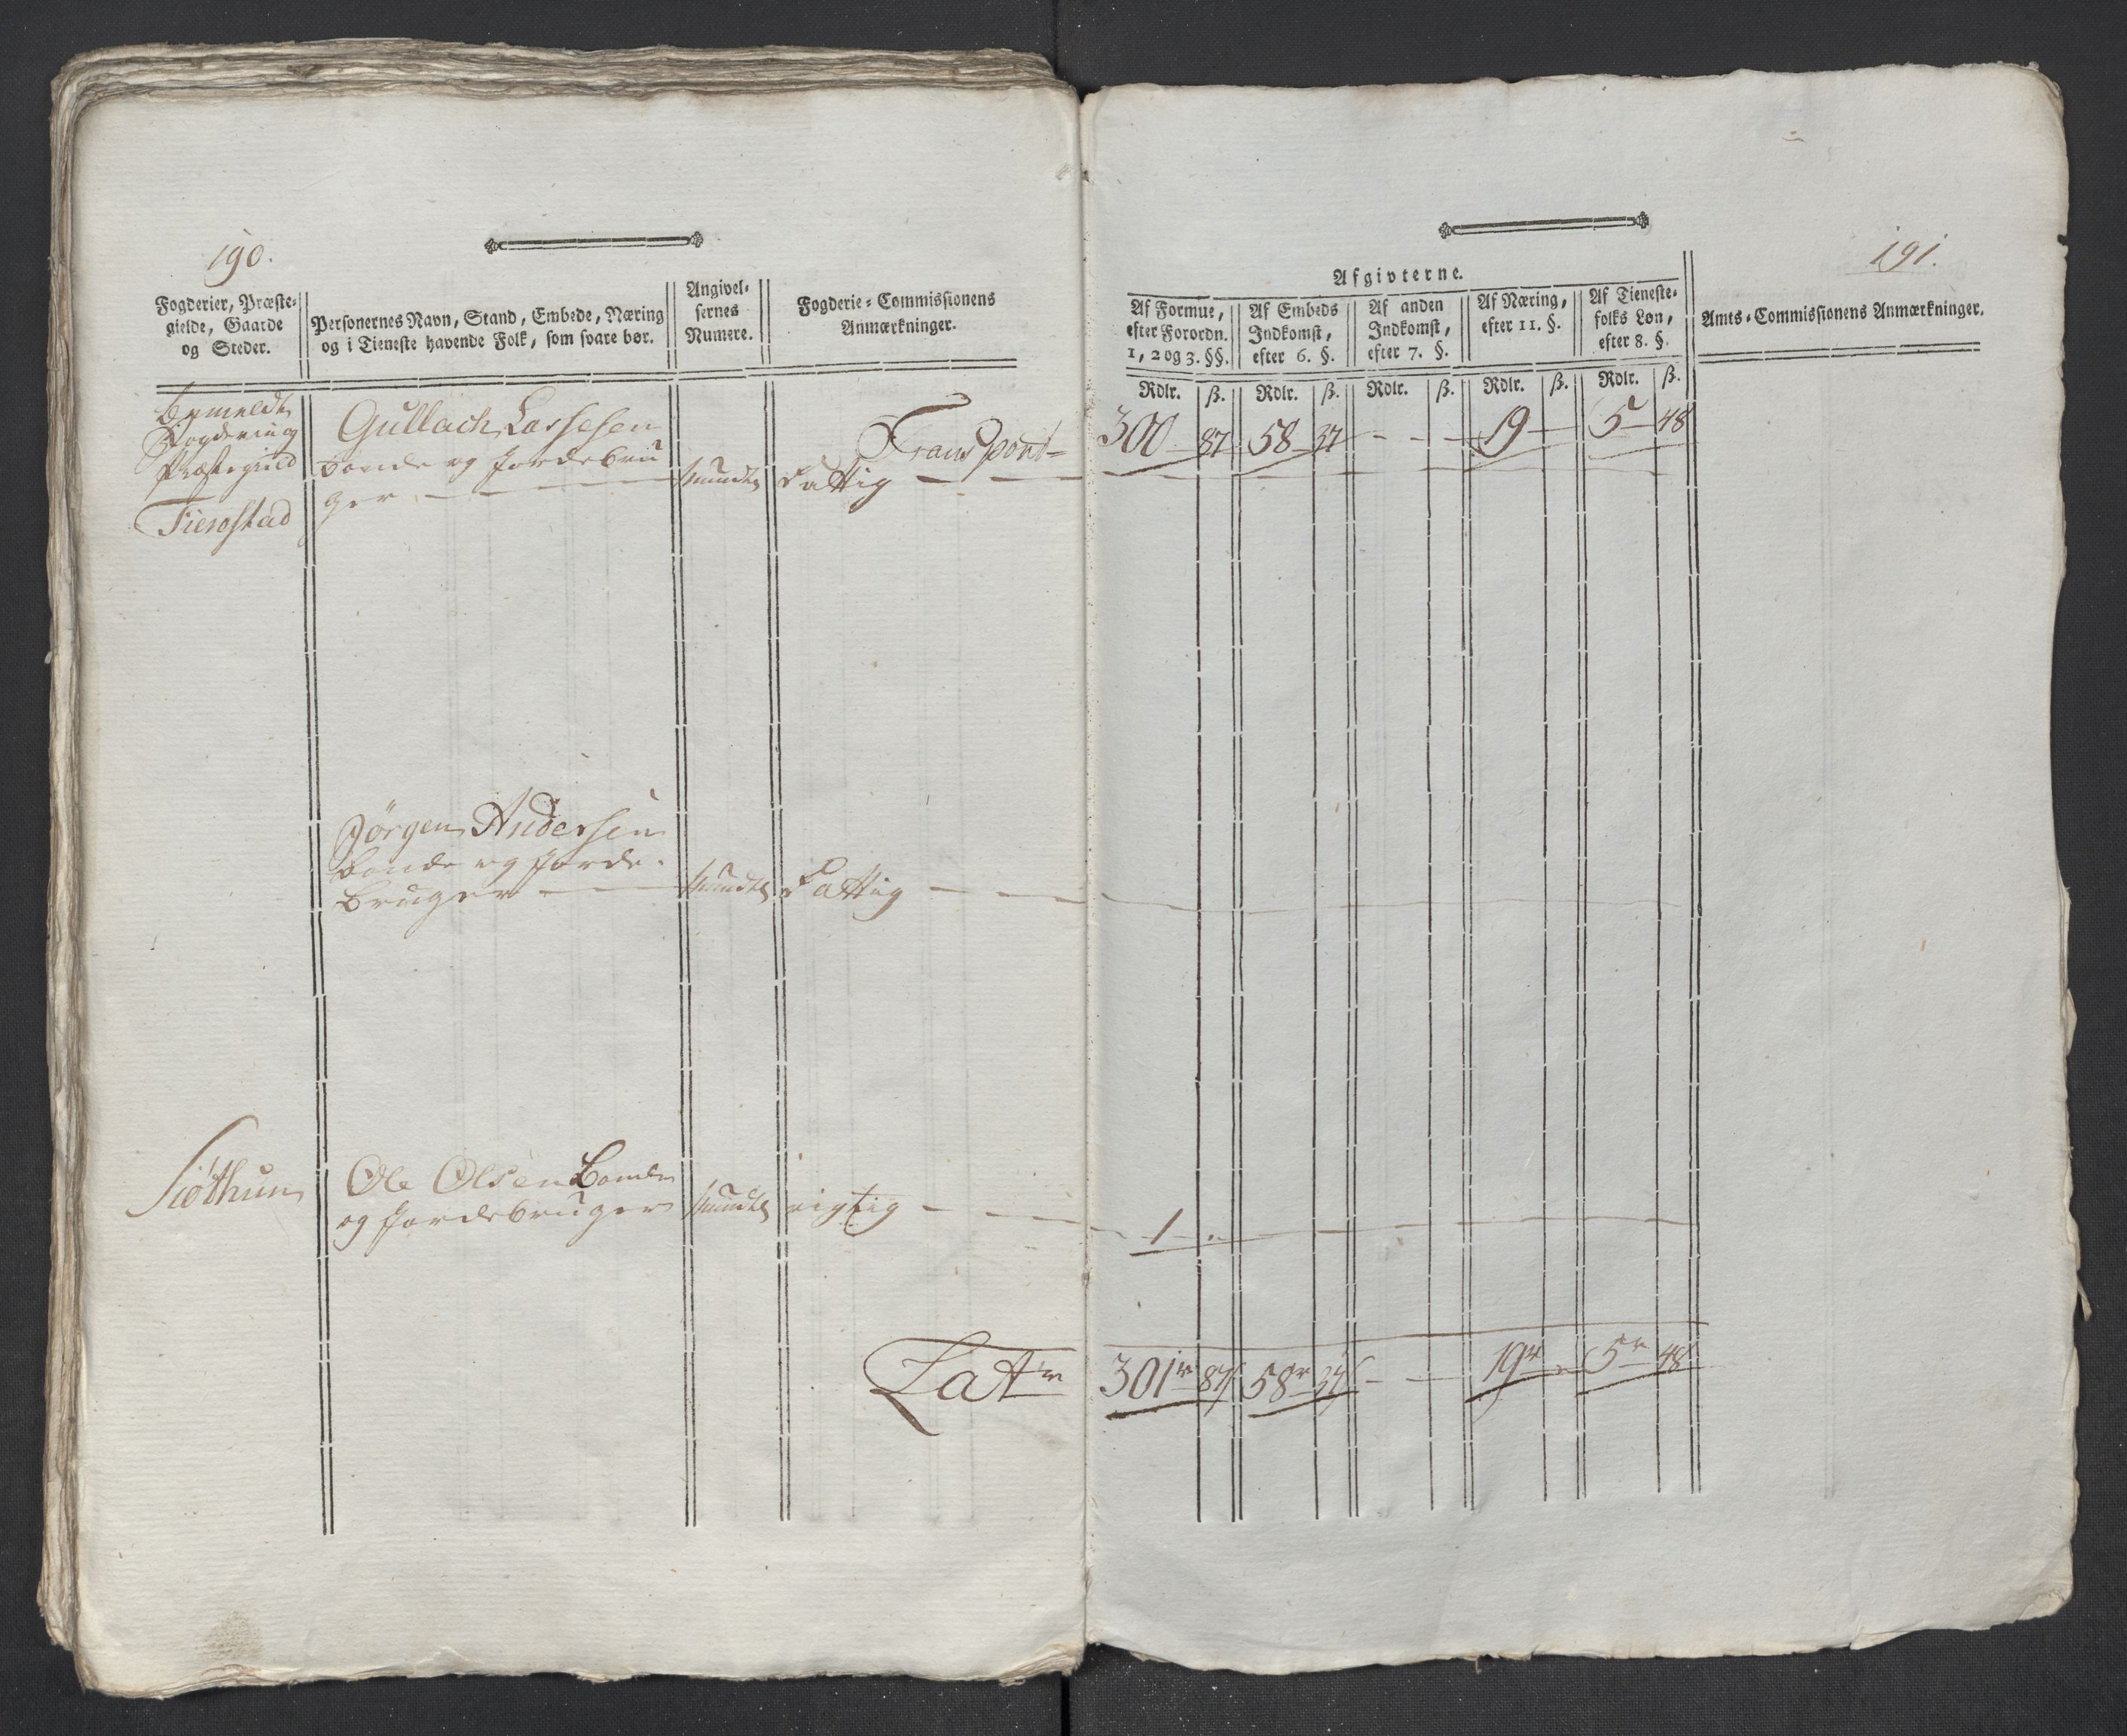 190.
Fogderier, Præste-
gielde, Gaarde
og Steder.
Personernes Navn, Stand, Embede, Næring
og i Tieneste havende Folk, som svare bør.
Angivel-
sernes
Numere.
Fogderie-Commissionens
Anmærkninger.
Bemeldte
Fogderie og
Præstegield
Fierostad
Gullach Lassesen
bonde og Jordebru
ger
Transport
mundtl Fattig
Jörgen Andersen
bonde og Jorde-
bruger mundtl Fattig
Siöthun
Ole Olsen Bonde
og Jordebruger mundtl rigtig
Lat
191.
Afgivterne.
Af Formue,
efter Forordn.
1, 2 og 3. §§.
Af Embeds
Indkomst,
efter 6. §.
Af anden
Indkomst,
efter 7. §.
Af Næring,
efter 11. §.
Af Tieneste-
folks Løn,
efter 8. §.
Amts-Commissionens Anmærkninger.
Rdlr. ß. Rdlr. ß. Rdlr. ß. Rdlr. ß. Rdlr. ß.
300 87 58 37 - - - 19 - 5 48
1 .
301 87 58 37 - - 19 - 5 48